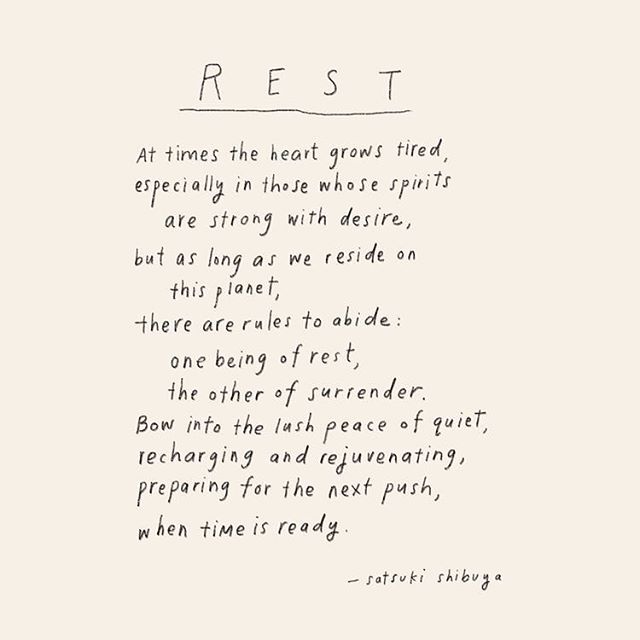 REST
At times the heart grows tired,
especially in those whose spirits
are strong with desire,
but as long as we reside on
this planet,
there are rules to abide:
one being of rest,
the other of surrender.
Bow into the lush peace of quiet,
recharging and rejuvenating,
preparing for the next push,
when time is ready.
– satsuki shibuya